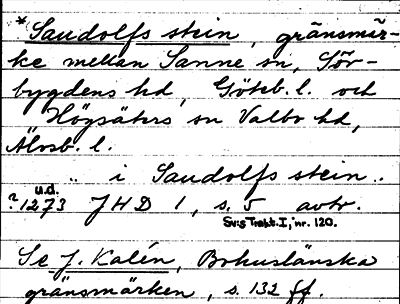 *Saudolfs stein, gränsmär-
ke mellan Sanne sn, Sör-
bygdens hd, Göteb. l. och
Högsäters sn Valbo hd,
Älvsb. l.
„ i Saudolfs stein „
u.d.
?1273 JHD 1, s. 5 avtr.
Svis Trakt. I, nr. 120.
Se J. Kalén, Bohuslänska
gränsmärken, s. 132 ff.